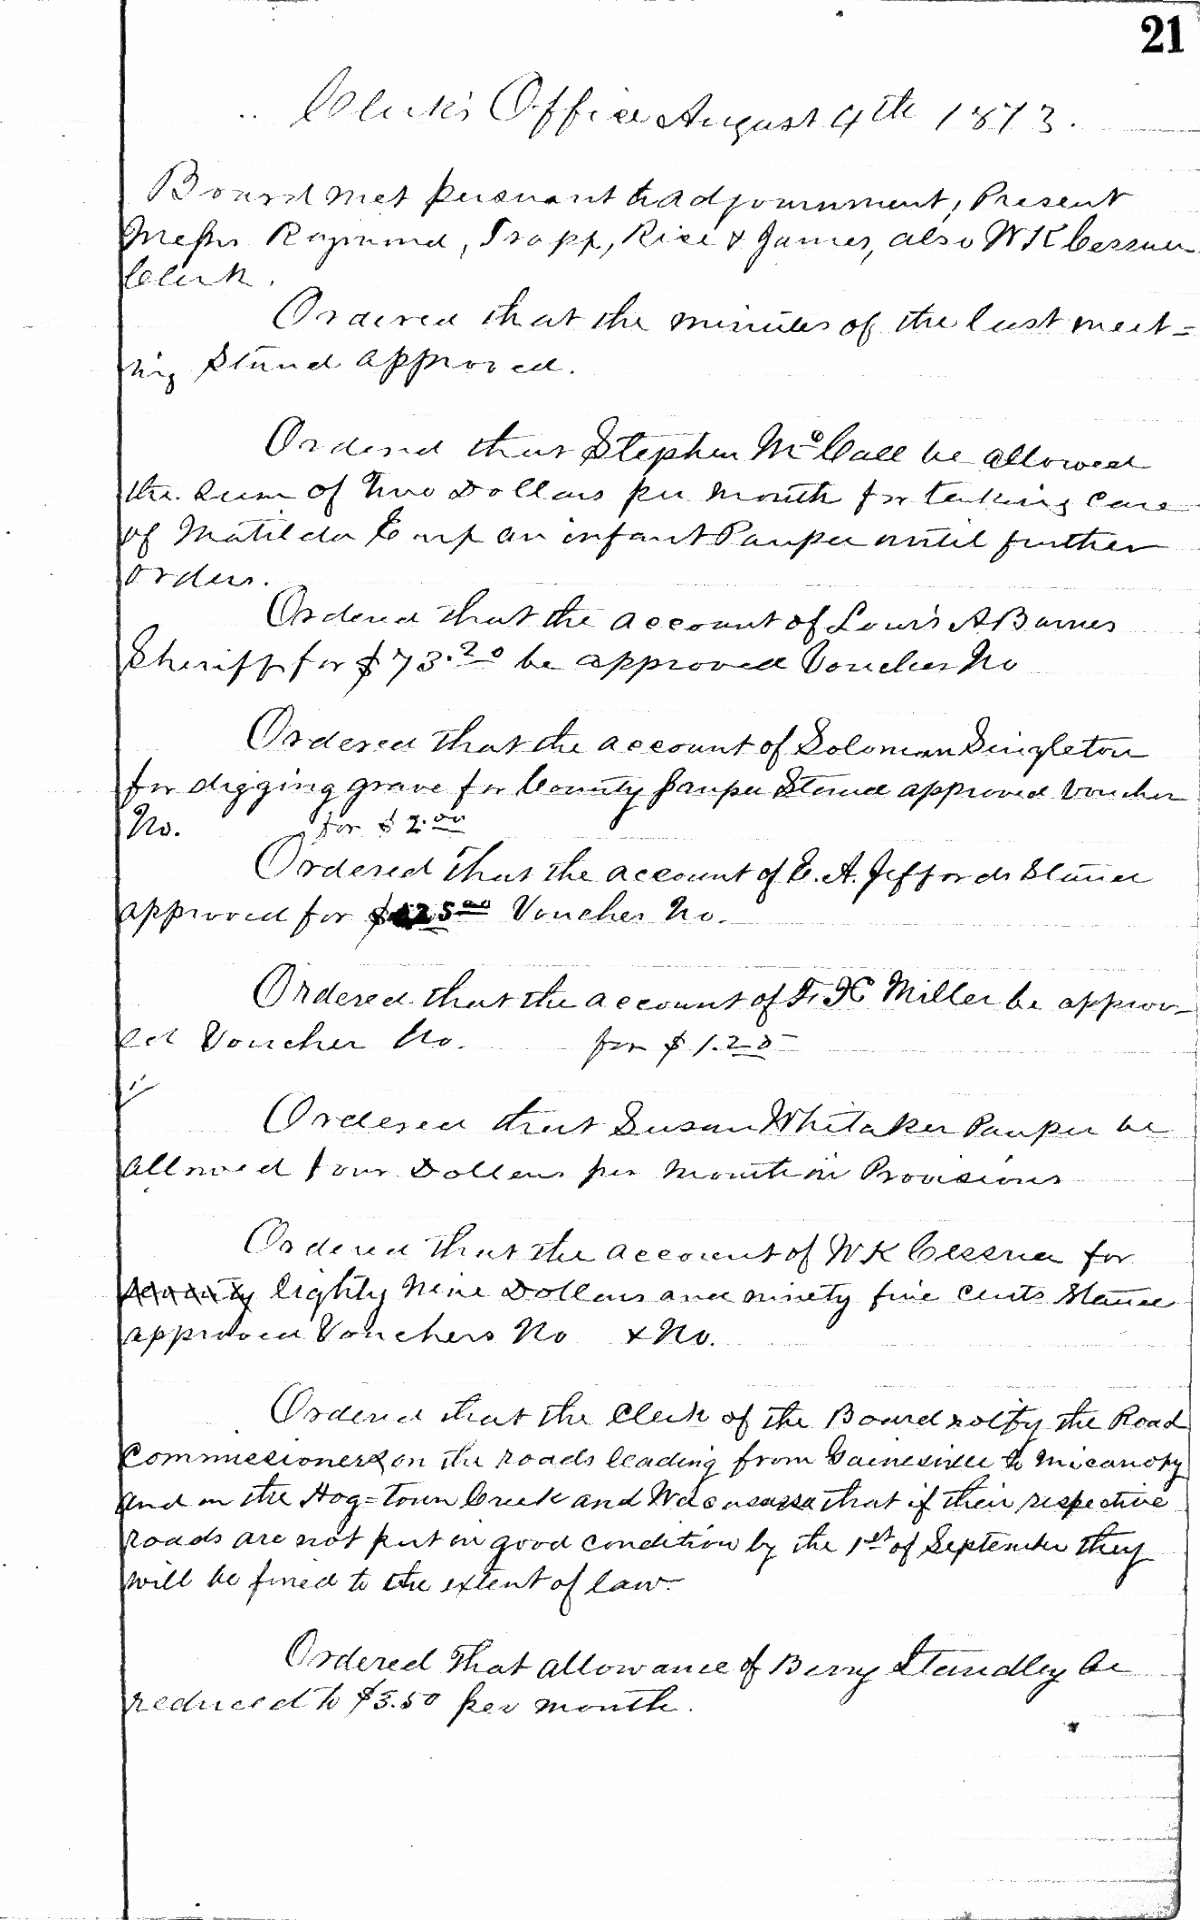 21
Clerk's Office August 4th 1873.
Board met pursuant to adjournment, Present
Messrs Raymond, Trapp, Rice & James, also W K Cessna
Clerk.
Ordered that the minutes of the last meet=
ing stand approved.
Ordered that Stephen McCall be allowed
the sum of Two Dollars per month for taking care
of Matilda Earp an infant Pauper until further
orders.
Ordered that the account of Louis A Barnes
Sheriff for $73.20 be approved Voucher No
Ordered that the account of Soloman Singleton
for digging grave for County Pauper Stand approved Voucher
No. for $2.00
Ordered that the account of E. A. Jeffords Stand
approved for $25.00 Voucher No.
Ordered that the account of F. X Miller be approv-
ed Voucher No. for $1.25
Ordered that Susan Whitaker Pauper be
allowed four Dollars per month in Provisions
Ordered that the account of W K Cessna for
Eighty Nine Dollars and ninety five cents Stand
approved Vouchers No & No.
Ordered that the Clerk of the Board notify the Road
Commissioners on the roads leading from Gainesville to Micanopy
and on the Hog=Town Creek and Wacasassa that if their respective
roads are not put in good condition by the 1st of September they
will be fined to the extent of law.
Ordered that allowance of Berry Standley be
reduced to $3.50 per month.